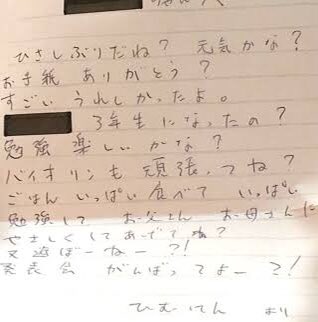 ひさしぶりだね? 元気かな?
お手紙 ありがとう?
すごい うれしかったよ。
3年生になったの?
勉強 楽しいかな?
バイオリンも 頑張ってね?
ごはん いっぱい食べて いっぱい
勉強して お父さん お母さんに
やさしくしてあげてね?
又遊ぼーねー?!
発表会 がんばってよー?!
ひむけん より